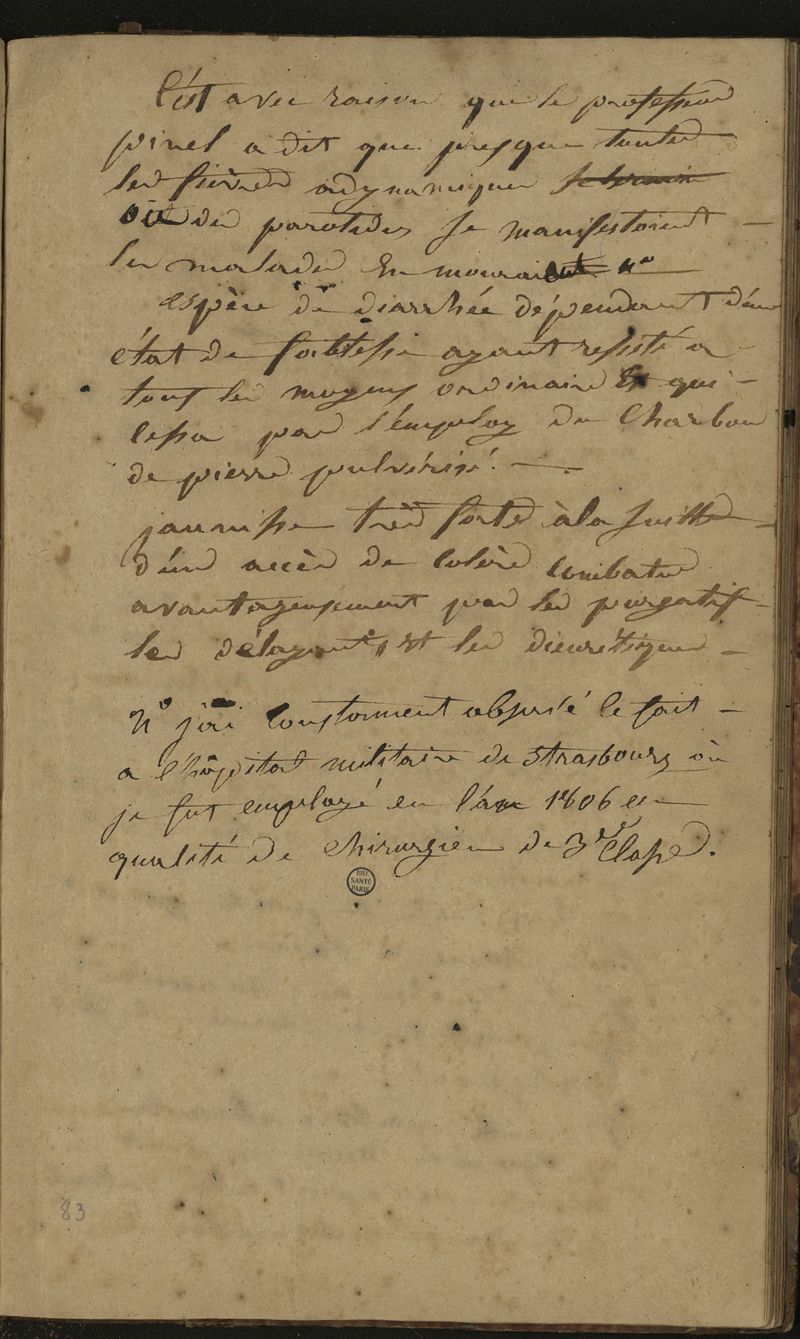 C'est avec raison que le professeur
pinel a dit que presque toutes
les fièvres adynamiques
où des parotides se manifestoient —
les malades en mouraient n°
espèce de diarrhée dépendant d'un
état de foiblesse ayant resisté a
tous les moyens ordinaires et qui —
cessa par l'employ du Charbon
de pierre pulvérisé. —
jaunisse très forte à la suitte
d'un accès de colère combatue
avantageusement par les purgatifs
les délayants, et les diurétiques —
n° j'ai constamment observé ce fait —
a l'hôpital militaire de Strasbourg où
je fus employé en l'an 1806 en
qualité de chirurgien de 3e Classe.
BIU
SANTÉ
PARIS
83